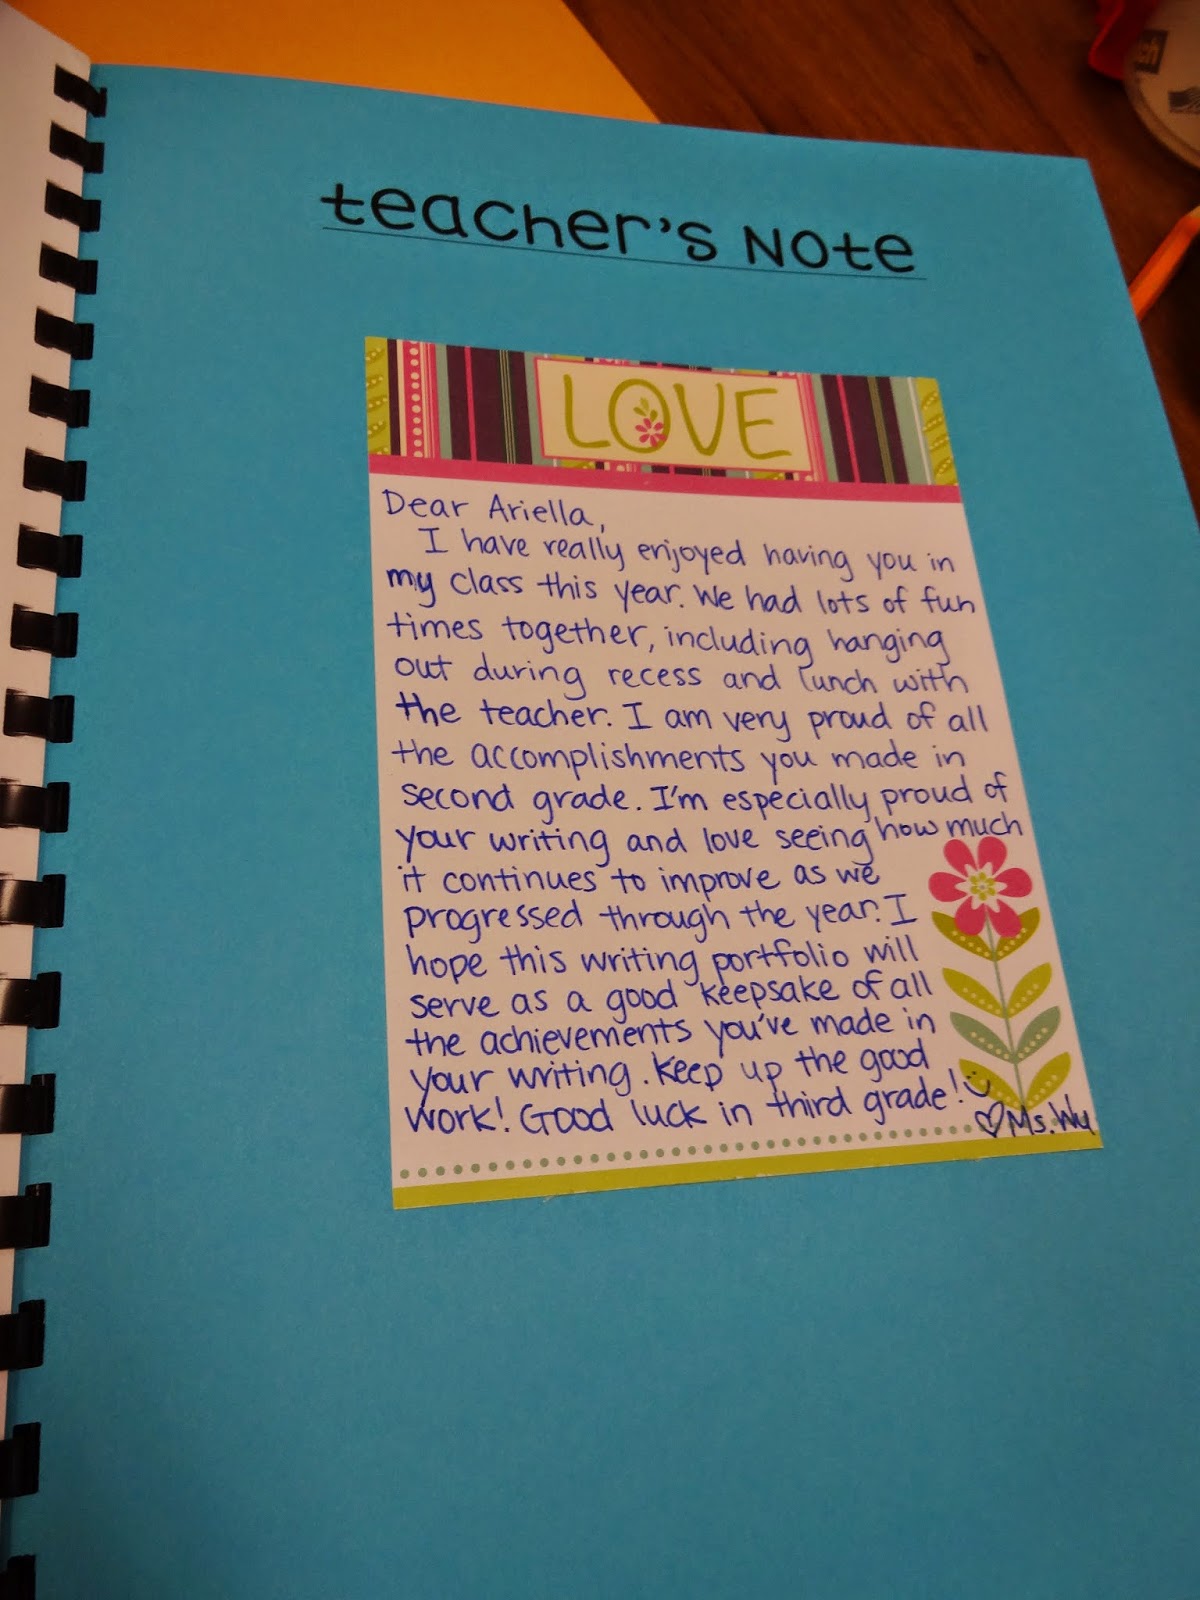 teacher's Note
LOVE
Dear Ariella,
I have really enjoyed having you in
my class this year. We had lots of fun
times together, including hanging
out during recess and lunch with
the teacher. I am very proud of all
the accomplishments you made in
second grade. I'm especially proud of
your writing and love seeing how much
it continues to improve as we
progressed through the year. I
hope this writing portfolio will
serve as a good keepsake of all
the achievements you've made in
your writing. Keep up the good
work! Good luck in third grade!
Ms. Wu